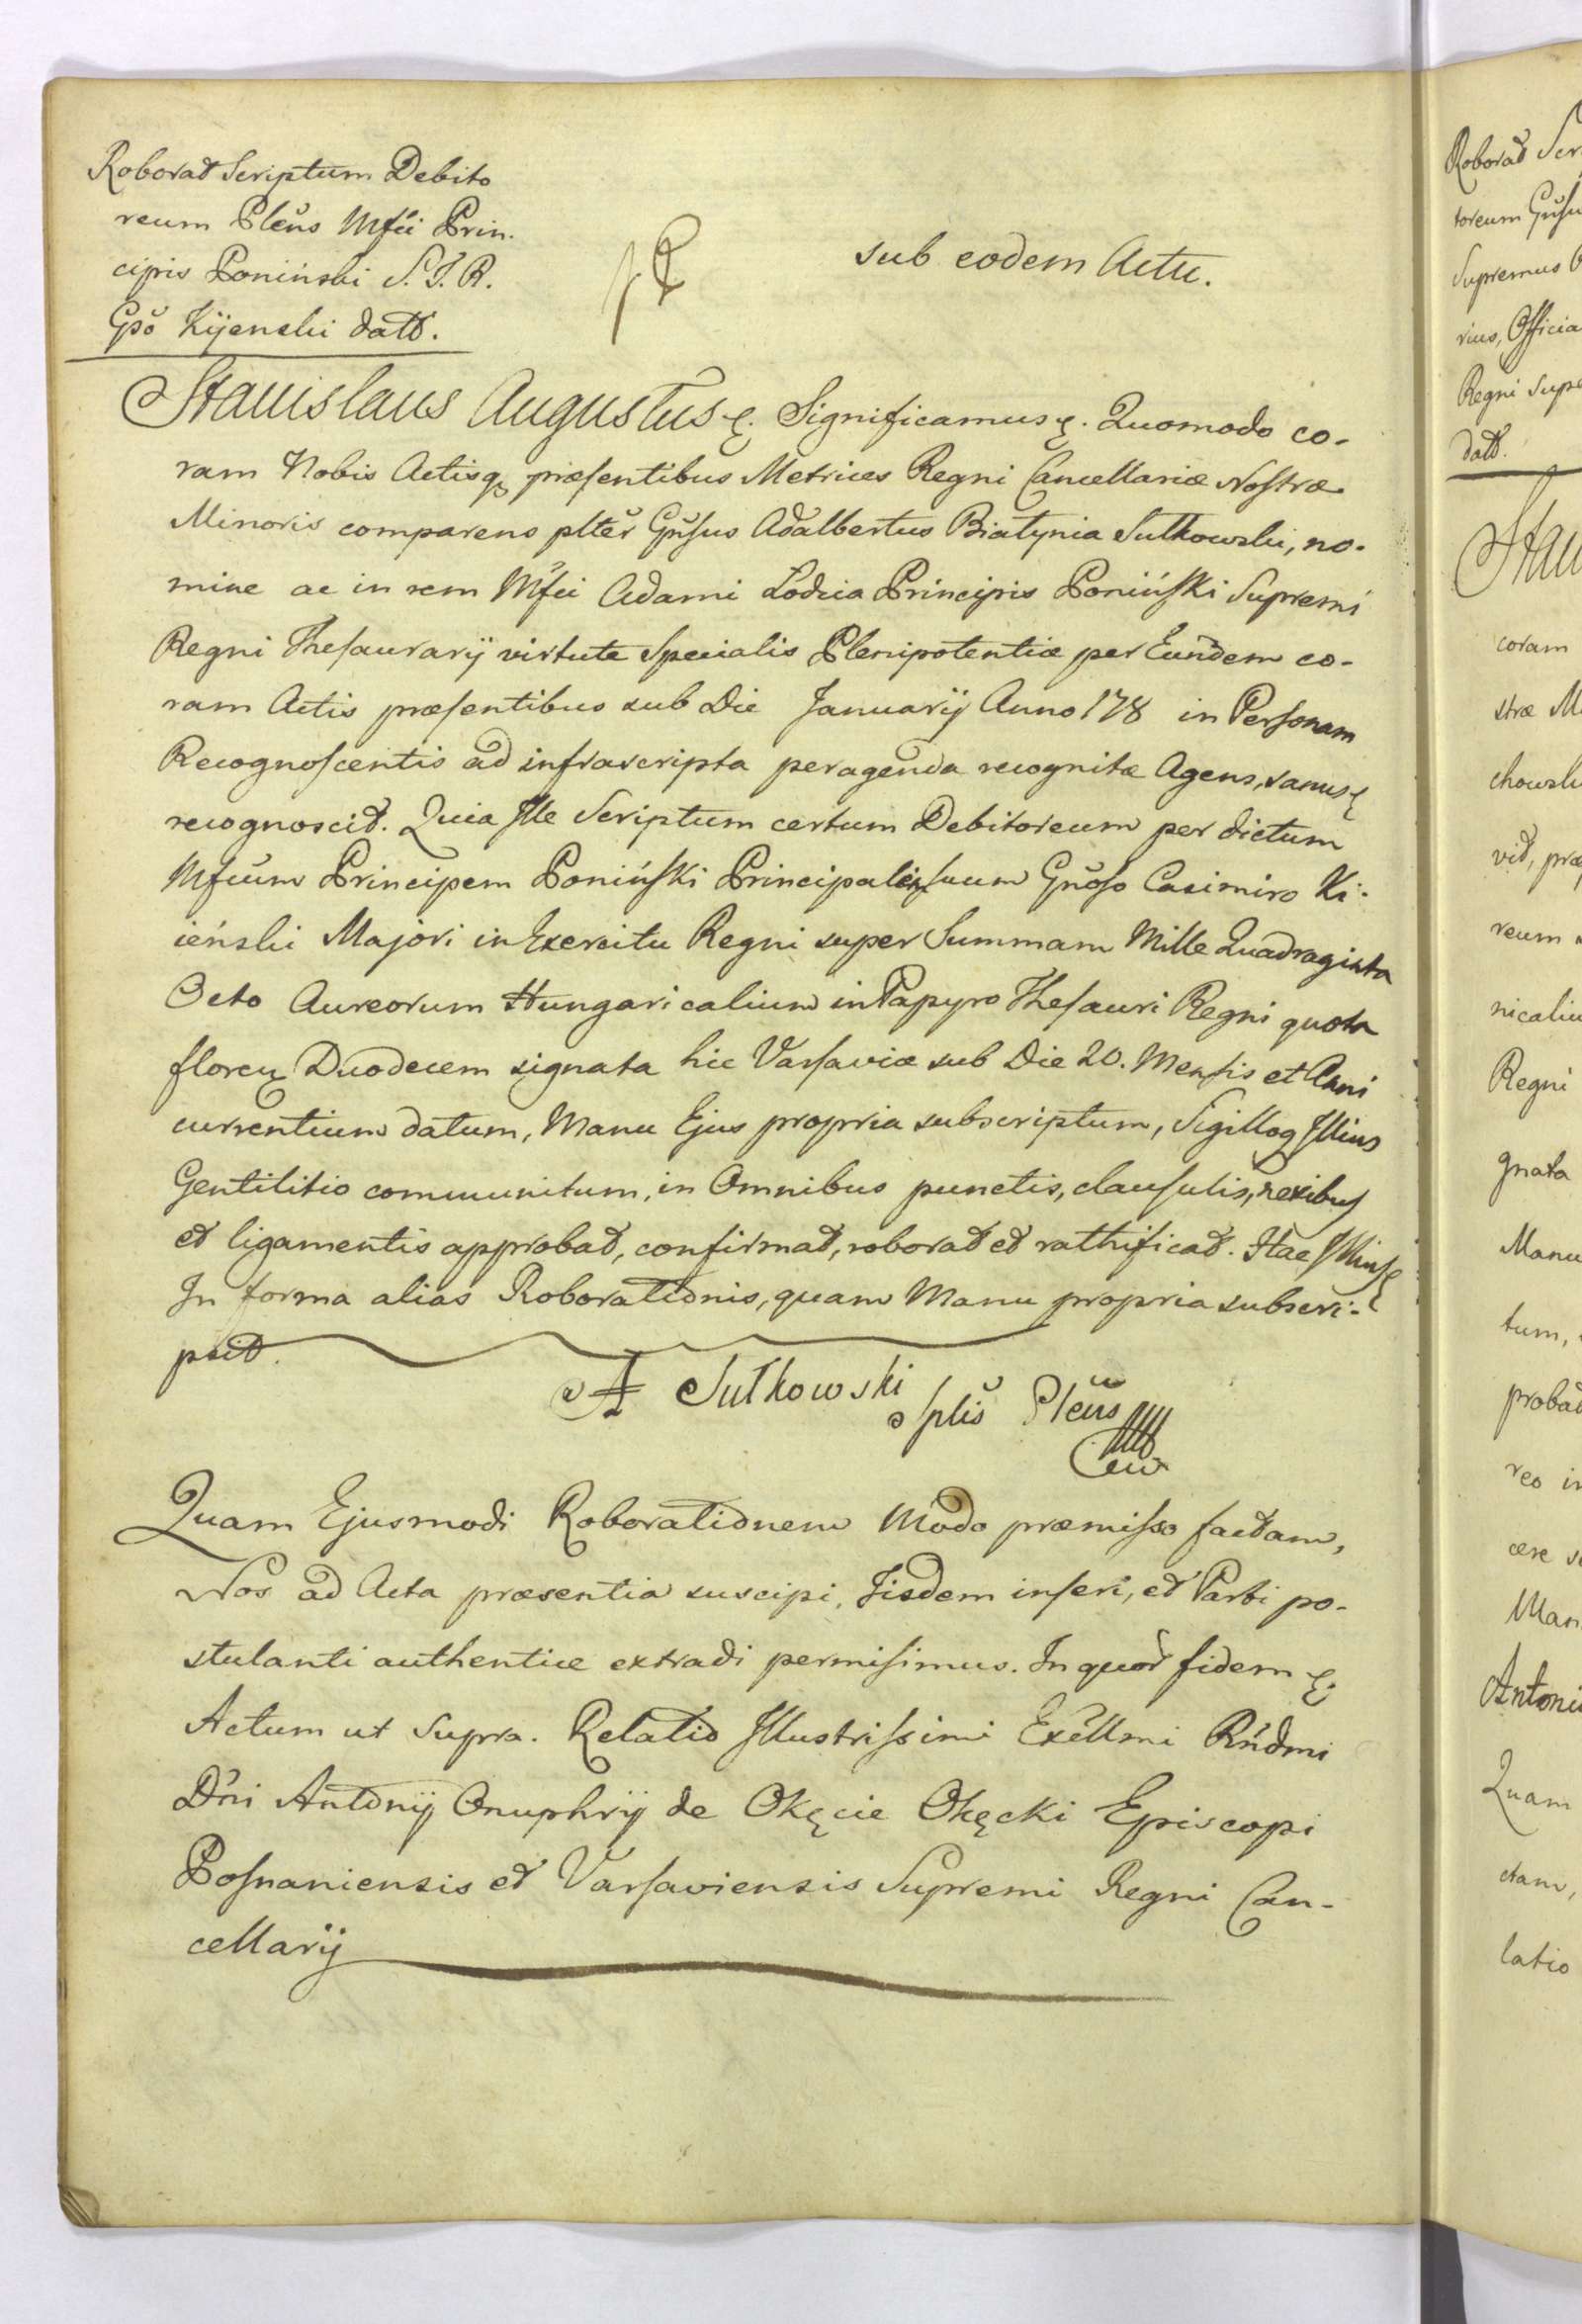 Roborat Scriptum Debito
reum Plēns Mfci Prin-
cipis Poniński S. J. R.
Gso Kijenski datt.
sub eodem Actu.
Stanislaus Augustus &. Significamus &. Quomodo co-
ram Nobis Actisq præsentibus Metrices Regni Cancellariæ Nostræ
Minoris comparens plter Gnsus Adalbertus Białynia Sutkowski, no-
mine ac in rem Mfci Adami Lodzia Principis Poniński Supremi
Regni Thesaurarij virtute Specialis Plenipotentiæ per Eundem co-
ram Actis præsentibus sub Die Januarij Anno 178 in Personam
Recognoscentis ad infrascripta peragenda recognitæ Agens, sanus &
recognoscit. Quia Ille Scriptum certum Debitoreum per dictum
Mfcum Principem Poniński Principalem suum Gnoso Casimiro Ki-
ieński Majori in Exercitu Regni super Summam Mille Quadraginta
Octo Aureorum Hungaricalium in Papyro Thesauri Regni quota
floren Duodecem signata hic Varsaviæ sub Die 20. Mensis et Anni
currentium datum, Manu Ejus propria subscriptum, Sigilloq Illius
Gentilitio communitum, in Omnibus punctis, clausulis, nexibus
et ligamentis approbat, confirmat, roborat et rathificat. Hac Illius &
In forma alias Roborationis, quam Manu propria subscri-
psit.
A Sutkowski
splis Plens
Quam Ejusmodi Roborationem Modo præmisso factam,
Nos ad Acta præsentia suscipi, Iisdem inseri, et Parti po-
stulanti authentice extradi permisimus. In quor fidem &
Actum ut Supra. Relatio Illustrissimi Exēllmi Rndmi
Dni Antonij Onuphrij de Okęcie Okęcki Episcopi
Posnaniensis et Varsaviensis Supremi Regni Can-
cellarij
Roborat Scr
toreum Gnsu
Supremus
rius, Officia
Regni Supe
datt.
Stau
coram
stræ M
chowsk
vit, præ
reum
nicaliu
Regni
gnata
Manu
tum,
probat
reo in
cere s
Man
Antoni
Quam
ctam,
latio